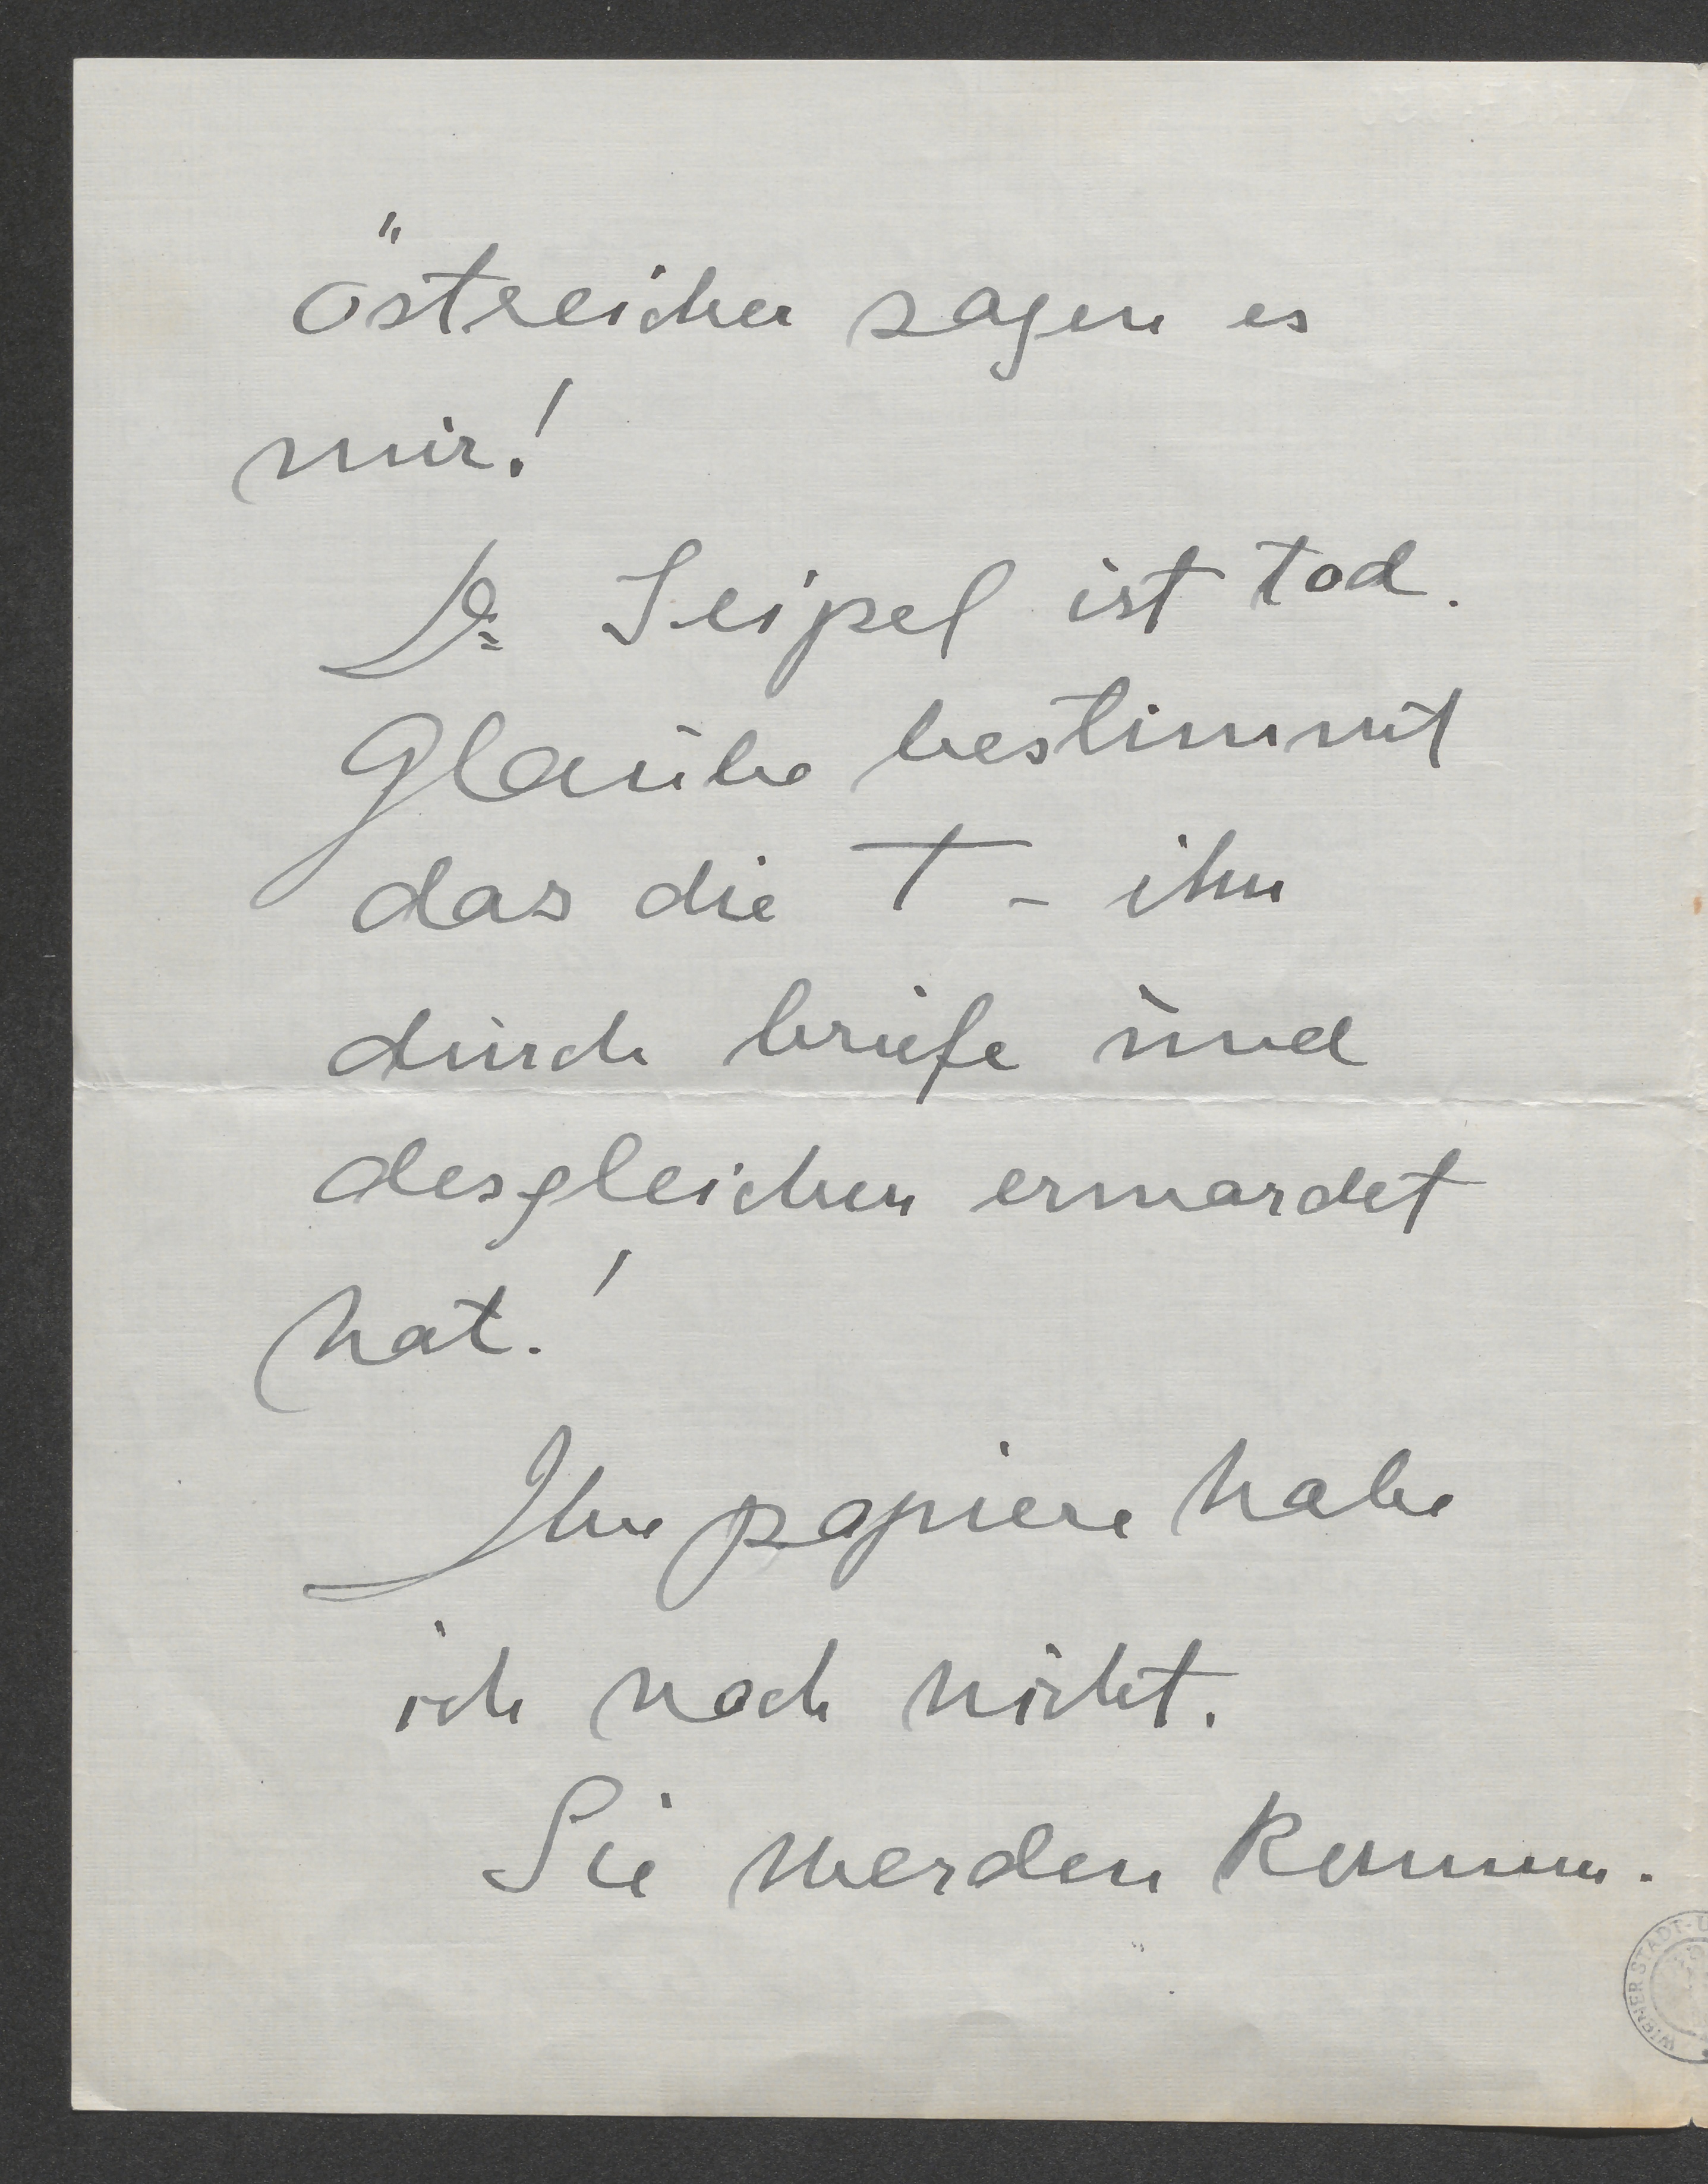 östreicher sagen es
mir!
Dr Seipel ist tod.
Glaube bestimmt
das die T - ihn
durch briefe und
desgleichen ermordet
hat!
Ihre papiere habe
ich noch nicht.
Sie werden kommen.
WIENER STADT-U